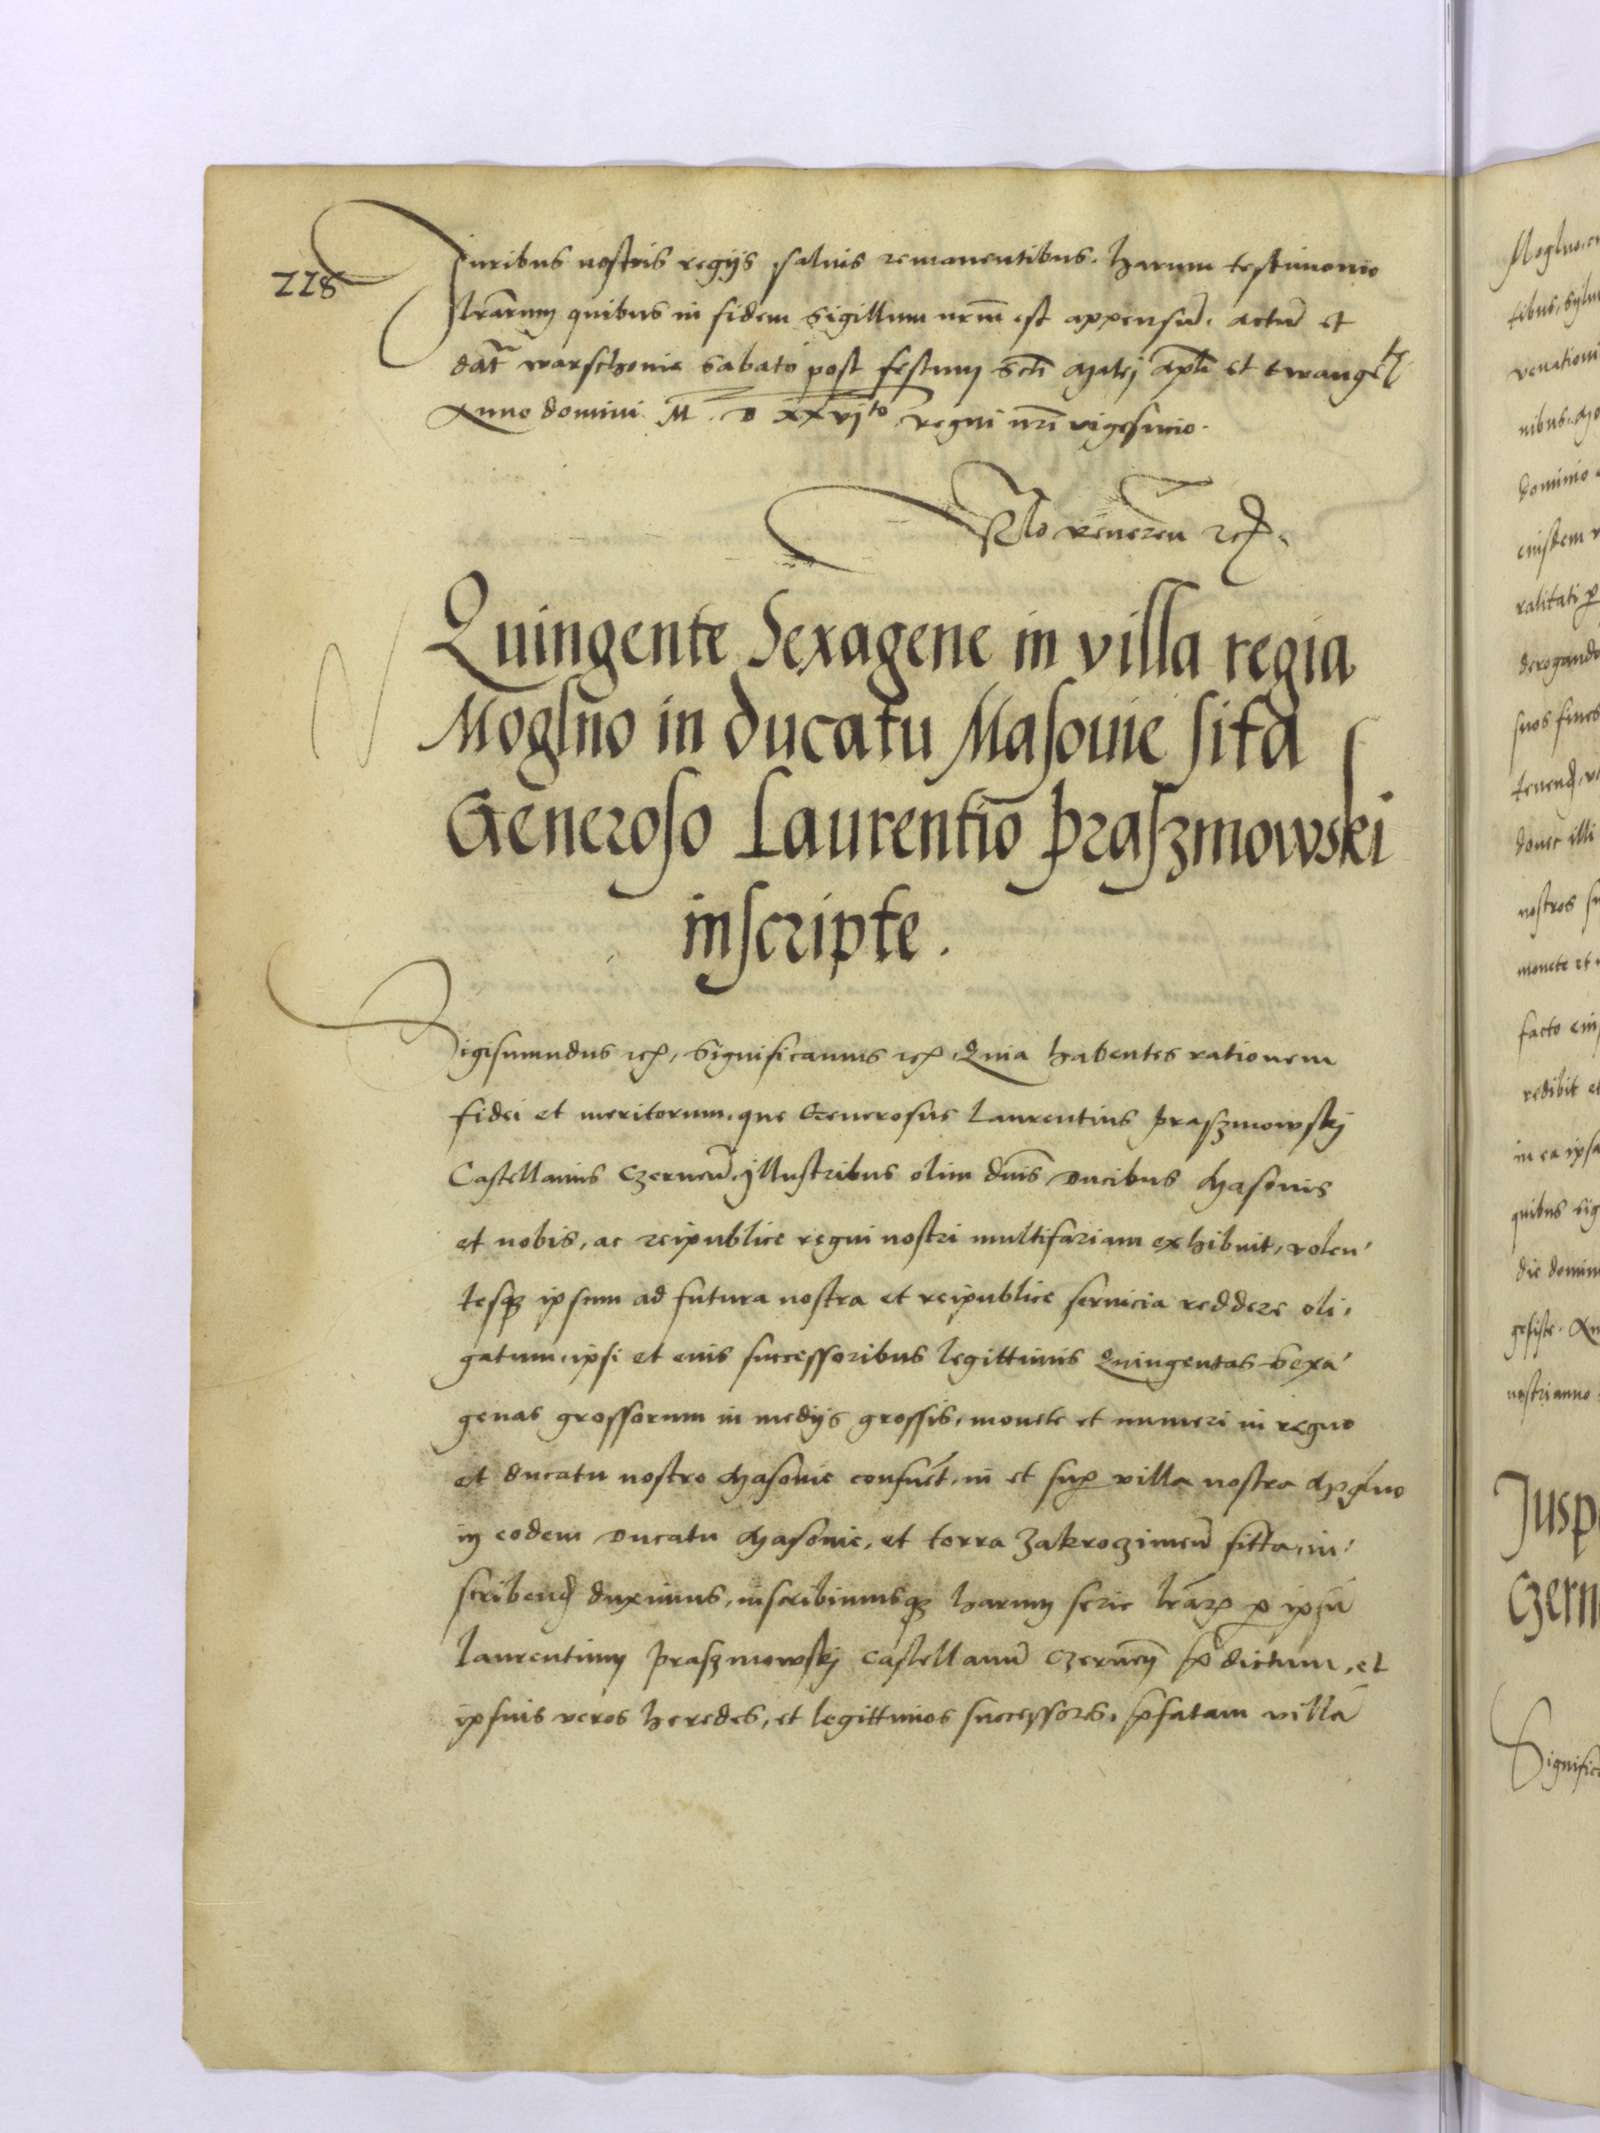 228
Iuribus nostris regijs saluis remanentibus. harum testimonio
lrarum quibus in fidem sigillum nrm est appensu. actu et
dat warschouie sabato post festum scti Mathei apli et ewangeli
Anno domini M D XXVIto regni nri vigesimo.
Rlo reueren etc.
Quingente Sexagene in villa regia
Moglno in ducatu Masouie sita
Generoso Laurentio Praszmowski
inscripte.
Sigismundus etc, Significamus etc Quia habentes rationem
fidei et meritorum, que Generosus Laurentius praszmowskj
Castellanus Czerneñ, Illustribus olim dnis Ducibus Masouie
et nobis, ac reipublice regni nostri multifariam exhibuit, volen
tesque ipsum ad futura nostra et reipublice seruicia reddere oli,
gatum, ipsi et euis successoribus legittimis Quingentas Sexa
genas grossorum in medijs grossis, monete et numeri in regno
et ducatu nostro Masouie consuet, in et sup villa nostra Moglno
in eodem Ducatu Masouie, et terra Zakroczimeñ sitta, in
scribend duximus, inscribimusque harum serie lrarum p ipsu
Laurentium praszmowskj castellanu Czerneñ pdictum, et
ipsius veros heredes, et legittimos successores, pfatam villa
Moglno
dominio
eiusdem
derogando
suos fines
donec illi
nostros
monete et
facto
redibit et
in ea ipsa
quibus sig
die
nostri anno
Iusp
Czern
Signific